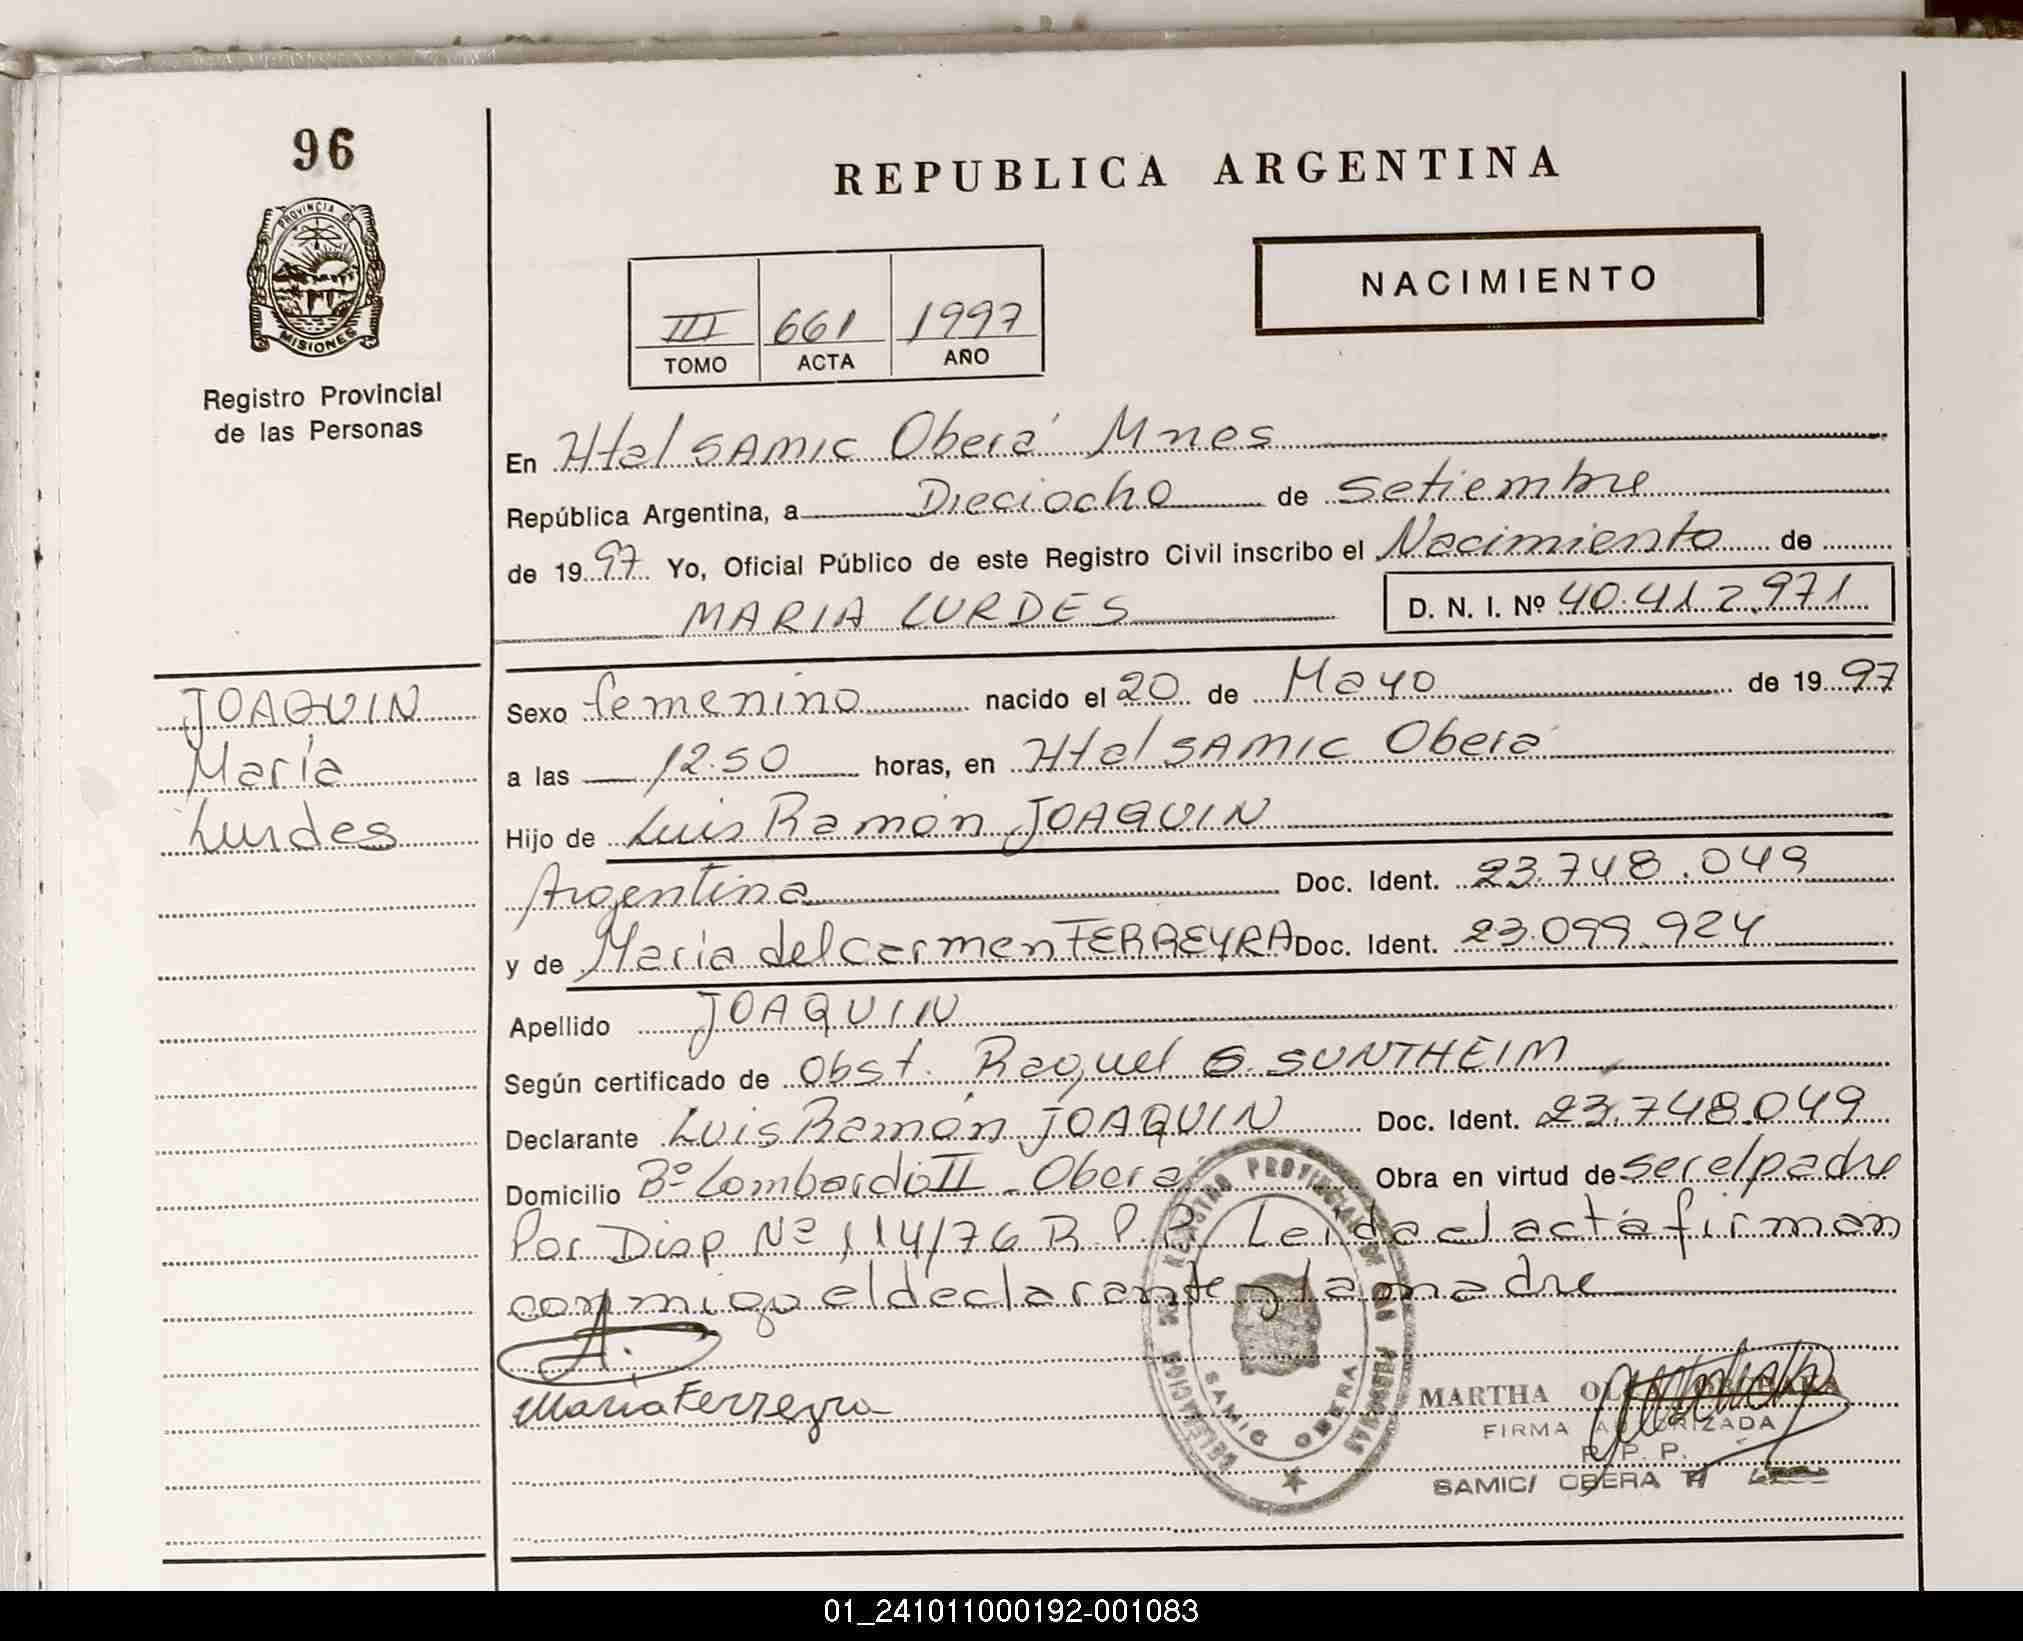 96
REPUBLICA ARGENTINA
PROVINCIA DE
MISIONES
Registro Provincial
de las Personas
NACIMIENTO
III 661 1997
TOMO ACTA AÑO
En Htal SAMIC Oberá Mnes
República Argentina, a Dieciocho de Setiembre
de 1997 Yo, Oficial Público de este Registro Civil inscribo el Nacimiento de
MARIA LURDES D. N. I. Nº 40.412.971
JOAQUIN
María
Lurdes
Sexo femenino nacido el 20 de Mayo de 1997
a las 12.50 horas, en Htal SAMIC Oberá
Hijo de Luis Ramón JOAQUIN
Argentina Doc. Ident. 23.748.049
y de María del Carmen FERREYRA Doc. Ident. 23.099.924
Apellido JOAQUIN
Según certificado de Obst. Raquel G. SUNTHEIM
Declarante Luis Ramón JOAQUIN Doc. Ident. 23.748.049
Domicilio Bº Lombardi II - Oberá Obra en virtud de ser el padre
Por Disp Nº 114/76 R.P.P. Leida el acta firman
conmigo el declarante y la madre
Maria Ferreyra
DELEGACION DE REGISTRO PROVINCIAL DE LAS PERSONAS
SAMIC OBERA
MARTHA
FIRMA AUTORIZADA
R. P. P.
SAMIC/ OBERA
01_241011000192-001083